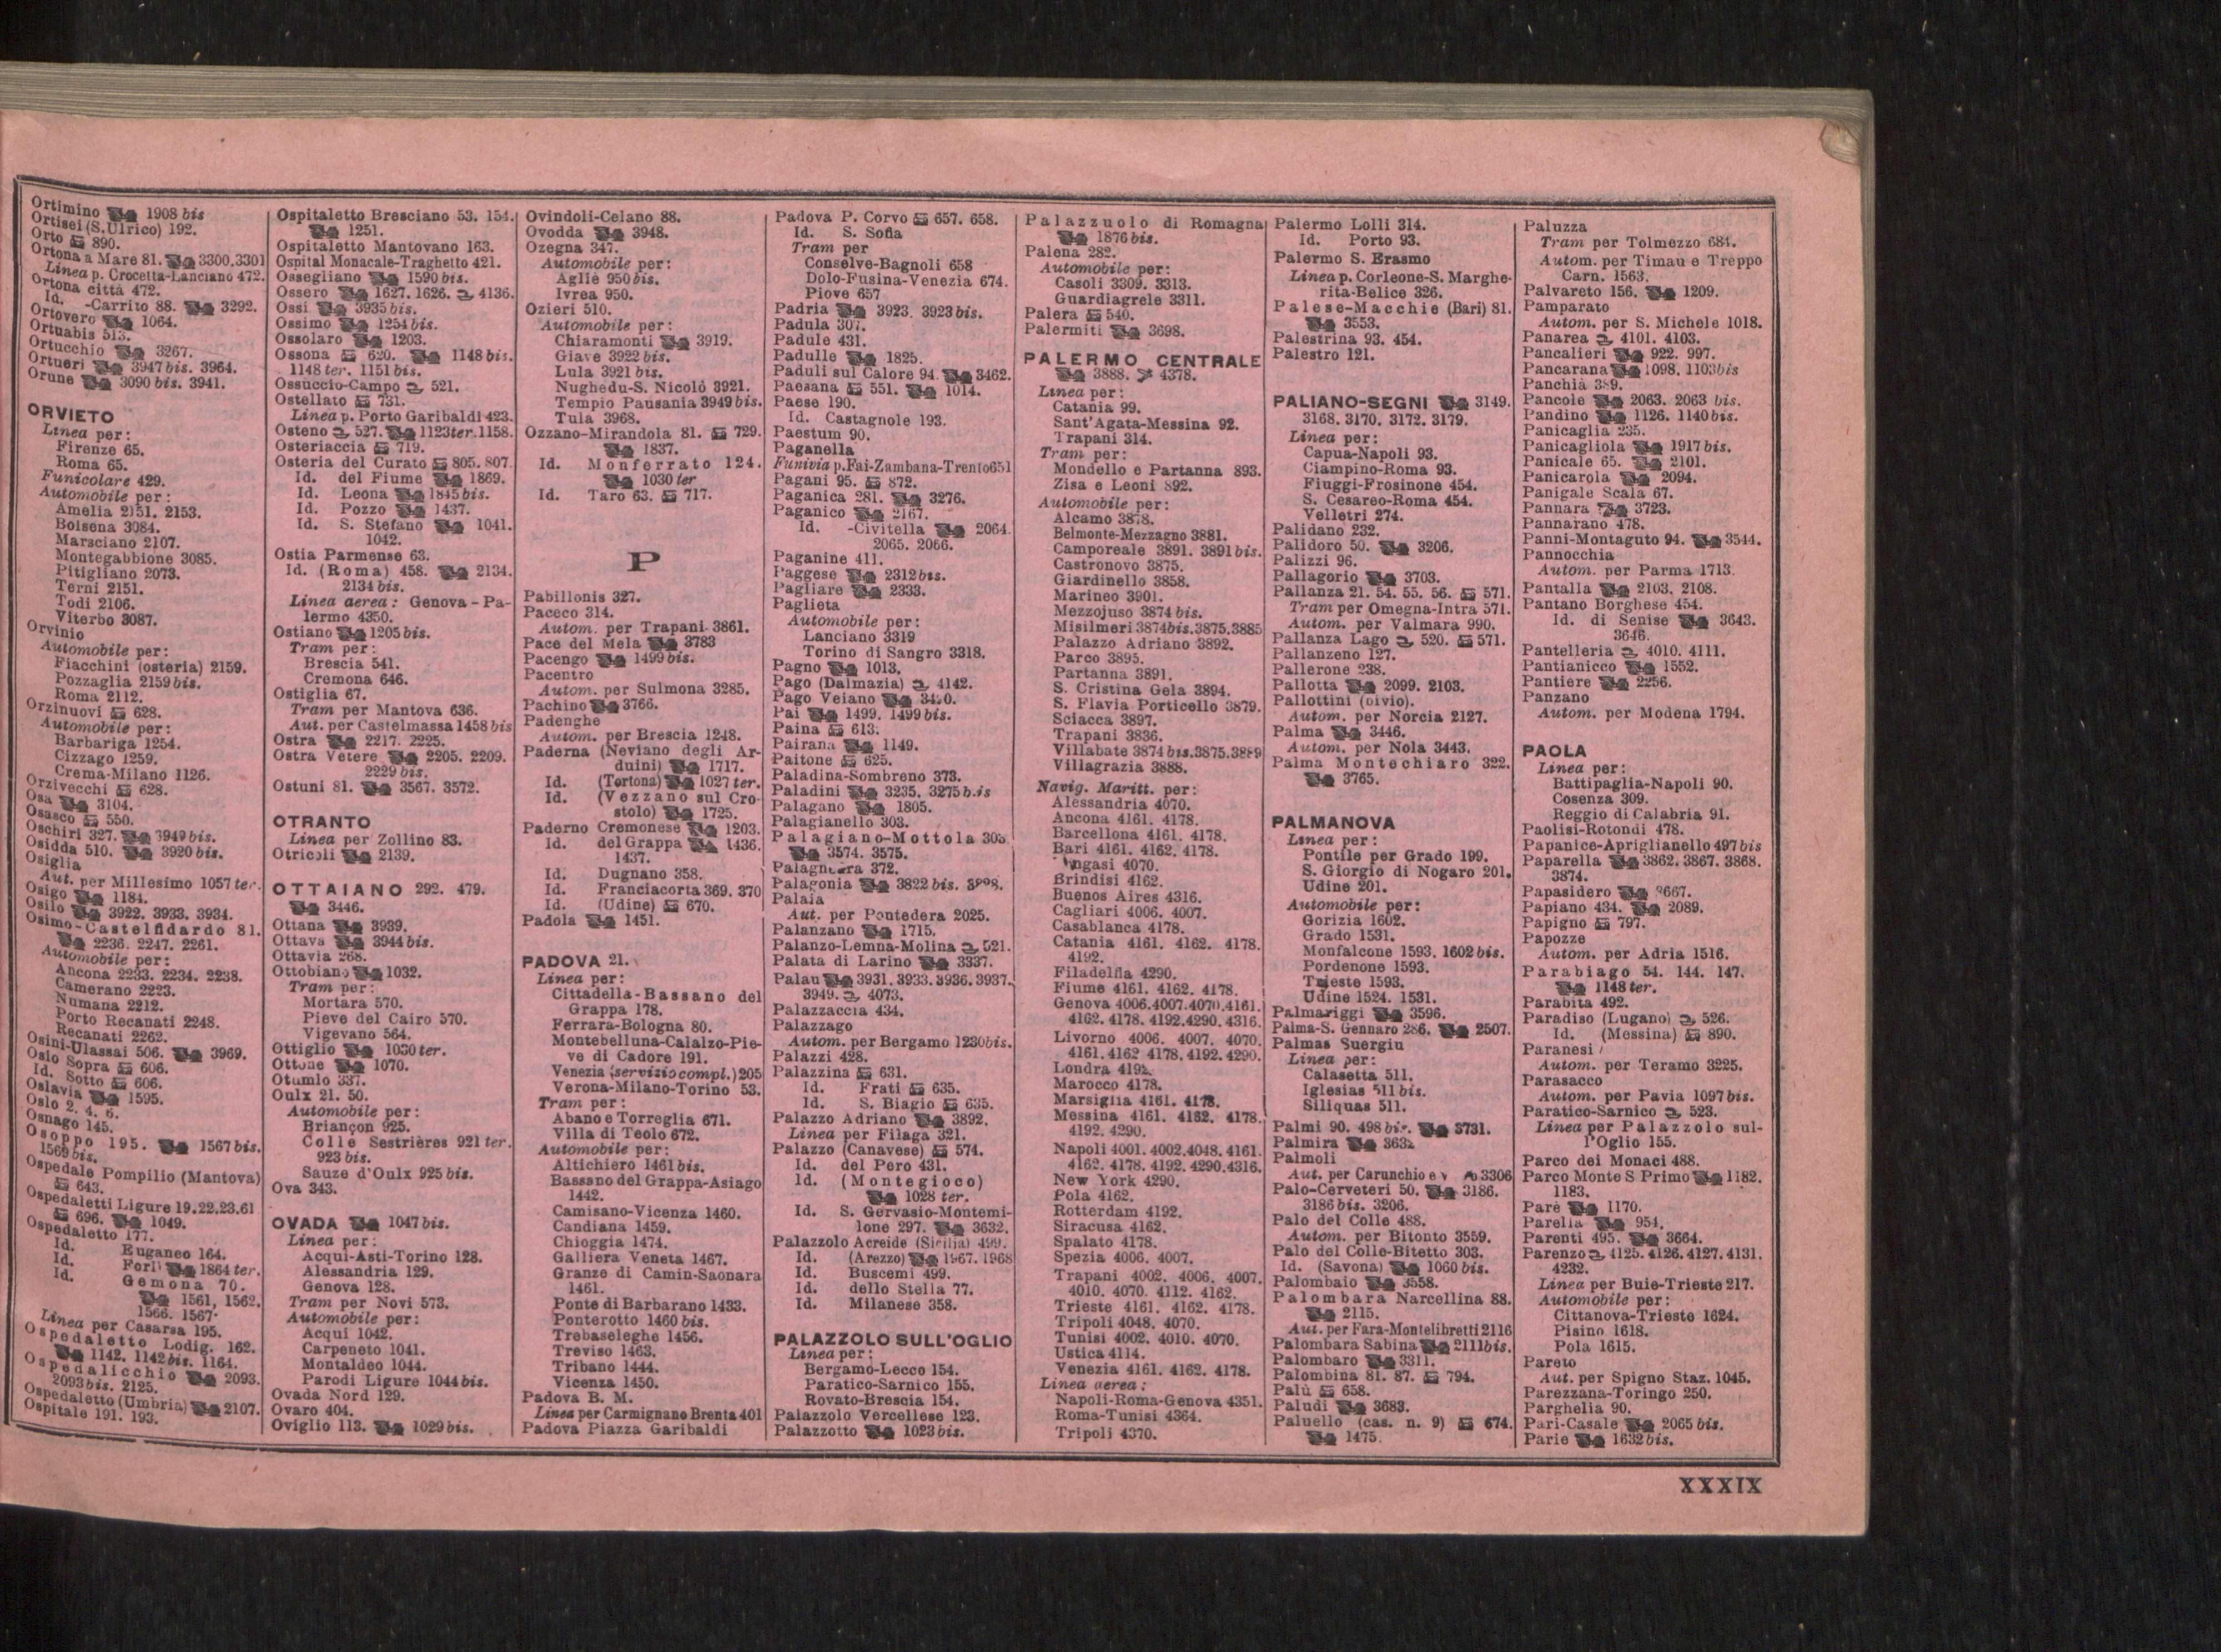 Ortimino 1908 bis
Ortisei (S.Ulrico) 192.
Orto 890.
Ortona a Mare 81. 3300.3301
Linea p. Crocetta-Lanciano 472.
Ortona città 472.
Id. -Carrito 88. 3292.
Ortovero 1064.
Ortuabis 513.
Ortucchio 3267.
Ortueri 3947 bis. 3964.
Orune 3090 bis. 3941.
ORVIETO
Linea per:
Firenze 65.
Roma 65.
Funicolare 429.
Automobile per:
Amelia 2151. 2153.
Bolsena 3084.
Marsciano 2107.
Montegabbione 3085.
Pitigliano 2073.
Terni 2151.
Todi 2106.
Viterbo 3087.
Orvinio
Automobile per:
Fiacchini (osteria) 2159.
Pozzaglia 2159 bis.
Roma 2112.
Orzinuovi 628.
Automobile per:
Barbariga 1254.
Cizzago 1259.
Crema-Milano 1126.
Orzivecchi 628.
Osa 3104.
Osasco 550.
Oschiri 327. 3949 bis.
Osidda 510. 3920 bis.
Osiglia
Aut. per Millesimo 1057 ter.
Osigo 1184.
Osilo 3922. 3933. 3934.
Osimo-Castelfidardo 81.
2236. 2247. 2261.
Automobile per:
Ancona 2233. 2234. 2238.
Camerano 2223.
Numana 2212.
Porto Recanati 2248.
Recanati 2262.
Osini-Ulassai 506. 3969.
Osio Sopra 606.
Id. Sotto 606.
Oslavia 1595.
Oslo 2. 4. 6.
Osnago 145.
Osoppo 195. 1567 bis.
1569 bis.
Ospedale Pompilio (Mantova)
643.
Ospedaletti Ligure 19.22.23.61
696. 1049.
Ospedaletto 177.
Id. Euganeo 164.
Id. Forlì 1864 ter.
Id. Gemona 70.
1561, 1562.
1566. 1567.
Linea per Casarsa 195.
Ospedaletto Lodig. 162.
1142. 1142 bis. 1164.
Ospedalicchio 2093.
2093 bis. 2125.
Ospedaletto (Umbria) 2107.
Ospitale 191. 193.
Ospitaletto Bresciano 53. 154.
1251.
Ospitaletto Mantovano 163.
Ospital Monacale-Traghetto 421.
Ossegliano 1590 bis.
Ossero 1627. 1626. 4136.
Ossi 3935 bis.
Ossimo 1254 bis.
Ossolaro 1203.
Ossona 620. 1148 bis.
1148 ter. 1151 bis.
Ossuccio-Campo 521.
Ostellato 731.
Linea p. Porto Garibaldi 423.
Osteno 527. 1123 ter. 1158.
Osteriaccia 719.
Osteria del Curato 805. 807.
Id. del Fiume 1869.
Id. Leona 1845 bis.
Id. Pozzo 1437.
Id. S. Stefano 1041.
1042.
Ostia Parmense 63.
Id. (Roma) 458. 2134.
2134 bis.
Linea aerea: Genova-Pa-
lermo 4350.
Ostiano 1205 bis.
Tram per:
Brescia 541.
Cremona 646.
Ostiglia 67.
Tram per Mantova 636.
Aut. per Castelmassa 1458 bis
Ostra 2217. 2225.
Ostra Vetere 2205. 2209.
2229 bis.
Ostuni 81. 3567. 3572.
OTRANTO
Linea per Zollino 83.
Otricoli 2139.
OTTAIANO 292. 479.
3446.
Ottana 3939.
Ottava 3944 bis.
Ottavia 268.
Ottobiano 1032.
Tram per:
Mortara 570.
Pieve del Cairo 570.
Vigevano 564.
Ottiglio 1030 ter.
Ottone 1070.
Otumlo 337.
Oulx 21. 50.
Automobile per:
Briançon 925.
Colle Sestrières 921 ter.
923 bis.
Sauze d'Oulx 925 bis.
Ova 343.
OVADA 1047 bis.
Linea per:
Acqui-Asti-Torino 128.
Alessandria 129.
Genova 128.
Tram per Novi 573.
Automobile per:
Acqui 1042.
Carpeneto 1041.
Montaldeo 1044.
Parodi Ligure 1044 bis.
Ovada Nord 129.
Ovaro 404.
Oviglio 113. 1029 bis.
Ovindoli-Celano 88.
Ovodda 3948.
Ozegna 347.
Automobile per:
Agliè 950 bis.
Ivrea 950.
Ozieri 510.
Automobile per:
Chiaramonti 3919.
Giave 3922 bis.
Lula 3921 bis.
Nughedu-S. Nicolò 3921.
Tempio Pausania 3949 bis.
Tula 3968.
Ozzano-Mirandola 81. 729.
1837.
Id. Monferrato 124.
1030 ter
Id. Taro 63. 717.
P
Pabillonis 327.
Paceco 314.
Autom. per Trapani 3861.
Pace del Mela 3783
Pacengo 1499 bis.
Pacentro
Autom. per Sulmona 3285.
Pachino 3766.
Padenghe
Autom. per Brescia 1248.
Paderna (Neviano degli Ar-
duini) 1717.
Id. (Tortona) 1027 ter.
Id. (Vezzano sul Cro-
stolo) 1725.
Paderno Cremonese 1203.
Id. del Grappa 1436.
1437.
Id. Dugnano 358.
Id. Franciacorta 369. 370
Id. (Udine) 670.
Padola 1451.
PADOVA 21.
Linea per:
Cittadella-Bassano del
Grappa 178.
Ferrara-Bologna 80.
Montebelluna-Calalzo-Pie-
ve di Cadore 191.
Venezia (servizio compl.) 205
Verona-Milano-Torino 53.
Tram per:
Abano e Torreglia 671.
Villa di Teolo 672.
Automobile per:
Altichiero 1461 bis.
Bassano del Grappa-Asiago
1442.
Camisano-Vicenza 1460.
Candiana 1459.
Chioggia 1474.
Galliera Veneta 1467.
Granze di Camin-Saonara
1461.
Ponte di Barbarano 1433.
Ponterotto 1460 bis.
Trebaseleghe 1456.
Treviso 1463.
Tribano 1444.
Vicenza 1450.
Padova B. M.
Linea per Carmignano Brenta 401
Padova Piazza Garibaldi
Padova P. Corvo 657. 658.
Id. S. Sofia
Tram per
Conselve-Bagnoli 658
Dolo-Fusina-Venezia 674.
Piove 657
Padria 3923. 3923 bis.
Padula 307.
Padule 431.
Padulle 1825.
Paduli sul Calore 94. 3462.
Paesana 551. 1014.
Paese 190.
Id. Castagnole 193.
Paestum 90.
Paganella
Funivia p.Fai-Zambana-Trento 651
Pagani 95. 872.
Paganica 281. 3276.
Paganico 2167.
Id. -Civitella 2064.
2065. 2066.
Paganine 411.
Paggese 2312 bis.
Pagliare 2333.
Paglieta
Automobile per:
Lanciano 3319
Torino di Sangro 3318.
Pagno 1013.
Pago (Dalmazia) 4142.
Pago Veiano
Pai 1499. 1499 bis.
Paina 613.
Pairana 1149.
Paitone 625.
Paladina-Sombreno 373.
Paladini 3235. 3275 bis
Palagano 1805.
Palagianello 303.
Palagiano-Mottola 303.
3574. 3575.
Palagnedra 372.
Palagonia 3822 bis.
Palaia
Aut. per Pontedera 2025.
Palanzano 1715.
Palanzo-Lemna-Molina 521.
Palata di Larino 3337.
Palau 3931. 3933. 3936. 3937.
3949. 4073.
Palazzaccia 434.
Palazzago
Autom. per Bergamo 1230 bis.
Palazzi 428.
Palazzina 631.
Id. Frati 635.
Id. S. Biagio 635.
Palazzo Adriano 3892.
Linea per Filaga 321.
Palazzo (Canavese) 574.
Id. del Pero 431.
Id. (Montegioco)
1028 ter.
Id. S. Gervasio-Montemi-
lone 297. 3632.
Palazzolo Acreide (Sicilia) 499.
Id. (Arezzo) 1967. 1968
Id. Buscemi 499.
Id. dello Stella 77.
Id. Milanese 358.
PALAZZOLO SULL'OGLIO
Linea per:
Bergamo-Lecco 154.
Paratico-Sarnico 155.
Rovato-Brescia 154.
Palazzolo Vercellese 123.
Palazzotto 1023 bis.
Palazzuolo di Romagna
1876 bis.
Palena 282.
Automobile per:
Casoli 3309. 3313.
Guardiagrele 3311.
Palera 540.
Palermiti 3698.
PALERMO CENTRALE
3888. 4378.
Linea per:
Catania 99.
Sant'Agata-Messina 92.
Trapani 314.
Tram per:
Mondello e Partanna 893.
Zisa e Leoni 892.
Automobile per:
Alcamo 3878.
Belmonte-Mezzagno 3881.
Camporeale 3891. 3891 bis.
Castronovo 3875.
Giardinello 3858.
Marineo 3901.
Mezzojuso 3874 bis.
Misilmeri 3874bis.3875.3885
Palazzo Adriano 3892.
Parco 3895.
Partanna 3891.
S. Cristina Gela 3894.
S. Flavia Porticello 3879.
Sciacca 3897.
Trapani 3836.
Villabate 3874 bis.3875.3889
Villagrazia 3888.
Navig. Maritt. per:
Alessandria 4070.
Ancona 4161. 4178.
Barcellona 4161. 4178.
Bari 4161. 4162. 4178.
ngasi 4070.
Brindisi 4162.
Buenos Aires 4316.
Cagliari 4006. 4007.
Casablanca 4178.
Catania 4161. 4162. 4178.
4192.
Filadelfia 4290.
Fiume 4161. 4162. 4178.
Genova 4006.4007.4070.4161.
4162. 4178. 4192.4290. 4316.
Livorno 4006. 4007. 4070.
4161. 4162 4178. 4192. 4290.
Londra 4192.
Marocco 4178.
Marsiglia 4161. 4178.
Messina 4161. 4162. 4178.
4192. 4290.
Napoli 4001. 4002.4048. 4161.
4162. 4178. 4192. 4290.4316.
New York 4290.
Pola 4162.
Rotterdam 4192.
Siracusa 4162.
Spalato 4178.
Spezia 4006. 4007.
Trapani 4002. 4006. 4007.
4010. 4070. 4112. 4162.
Trieste 4161. 4162. 4178.
Tripoli 4048. 4070.
Tunisi 4002. 4010. 4070.
Ustica 4114.
Venezia 4161. 4162. 4178.
Linea aerea:
Napoli-Roma-Genova 4351.
Roma-Tunisi 4364.
Tripoli 4370.
Palermo Lolli 314.
Id. Porto 93.
Palermo S. Erasmo
Linea p. Corleone-S. Marghe-
rita-Belice 326.
Palese-Macchie (Bari) 81.
3553.
Palestrina 93. 454.
Palestro 121.
PALIANO-SEGNI 3149.
3168. 3170. 3172. 3179.
Linea per:
Capua-Napoli 93.
Ciampino-Roma 93.
Fiuggi-Frosinone 454.
S. Cesareo-Roma 454.
Velletri 274.
Palidano 232.
Palidoro 50. 3206.
Palizzi 96.
Pallagorio 3703.
Pallanza 21. 54. 55. 56. 571.
Tram per Omegna-Intra 571.
Autom. per Valmara 990.
Pallanza Lago 520. 571.
Pallanzeno 127.
Pallerone 238.
Pallotta 2099. 2103.
Pallottini (bivio).
Autom. per Norcia 2127.
Palma 3446.
Autom. per Nola 3443.
Palma Montechiaro 322.
3765.
PALMANOVA
Linea per:
Pontile per Grado 199.
S. Giorgio di Nogaro 201.
Udine 201.
Automobile per:
Gorizia 1602.
Grado 1531.
Monfalcone 1593. 1602 bis.
Pordenone 1593.
Trieste 1593.
Udine 1524. 1531.
Palmariggi 3596.
Palma-S. Gennaro 286. 2507.
Palmas Suergiu
Linea per:
Calasetta 511.
Iglesias 511 bis.
Siliquas 511.
Palmi 90. 498 bis. 3731.
Palmira 3632
Palmoli
Aut. per Carunchio e v 3306
Palo-Cerveteri 50. 3186.
3186 bis. 3206.
Palo del Colle 488.
Autom. per Bitonto 3559.
Palo del Colle-Bitetto 303.
Id. (Savona) 1060 bis.
Palombaio 3558.
Palombara Narcellina 88.
2115.
Aut. per Fara-Montelibretti 2116
Palombara Sabina 2111bis.
Palombaro 3311.
Palombina 81. 87. 794.
Palù 658.
Paludi 3683.
Paluello (cas. n. 9) 674.
1475.
Paluzza
Tram per Tolmezzo 684.
Autom. per Timau e Treppo
Carn. 1563.
Palvareto 156. 1209.
Pamparato
Autom. per S. Michele 1018.
Panarea 4101. 4103.
Pancalieri 922. 997.
Pancarana 1098. 1103bis
Panchià 389.
Pancole 2063. 2063 bis.
Pandino 1126. 1140 bis.
Panicaglia 235.
Panicagliola 1917 bis.
Panicale 65. 2101.
Panicarola 2094.
Panigale Scala 67.
Pannara 3723.
Pannarano 478.
Panni-Montaguto 94. 3544.
Pannocchia
Autom. per Parma 1713.
Pantalla 2103. 2108.
Pantano Borghese 454.
Id. di Senise 3643.
3646.
Pantelleria 4010. 4111.
Pantianicco 1552.
Pantiere 2256.
Panzano
Autom. per Modena 1794.
PAOLA
Linea per:
Battipaglia-Napoli 90.
Cosenza 309.
Reggio di Calabria 91.
Paolisi-Rotondi 478.
Papanice-Apriglianello 497 bis
Paparella 3862. 3867. 3868.
3874.
Papasidero 3667.
Papiano 434. 2089.
Papigno 797.
Papozze
Autom. per Adria 1516.
Parabiago 54. 144. 147.
1148 ter.
Parabita 492.
Paradiso (Lugano) 526.
Id. (Messina) 890.
Paranesi
Autom. per Teramo 3225.
Parasacco
Autom. per Pavia 1097 bis.
Paratico-Sarnico 523.
Linea per Palazzolo sul-
l'Oglio 155.
Parco dei Monaci 488.
Parco Monte S Primo 1182.
1183.
Parè 1170.
Parella 954.
Parenti 495. 3664.
Parenzo 4125. 4126. 4127. 4131.
4232.
Linea per Buie-Trieste 217.
Automobile per:
Cittanova-Trieste 1624.
Pisino 1618.
Pola 1615.
Pareto
Aut. per Spigno Staz. 1045.
Parezzana-Toringo 250.
Parghelia 90.
Pari-Casale 2065 bis.
Parie 1632 bis.
XXXIX